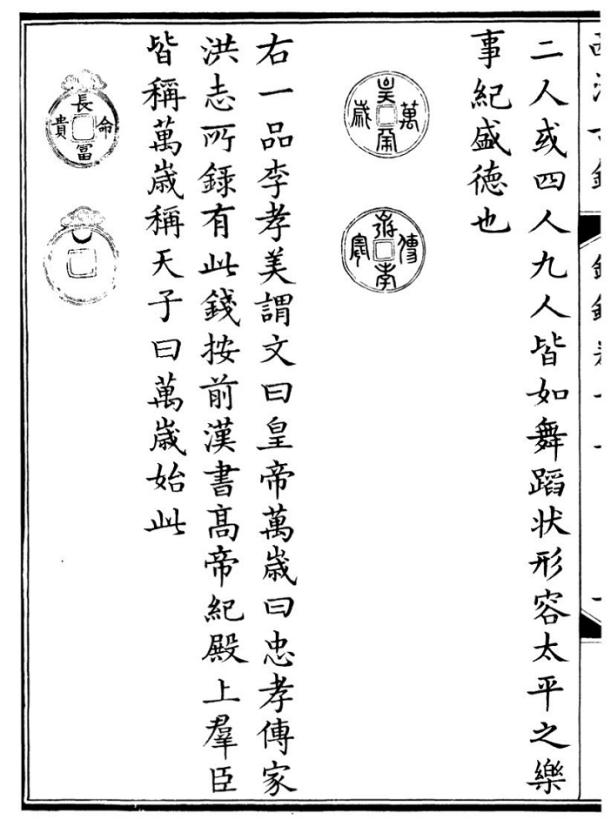 二人或四人九人皆如舞蹈状形容太平之樂
事紀盛徳也
皇帝萬歳
忠孝傳家
右一品李孝美謂文曰皇帝萬歳曰忠孝傳家
洪志所録有此錢按前漢書髙帝紀殿上羣臣
皆稱萬歳稱天子曰萬歳始此
長命富貴